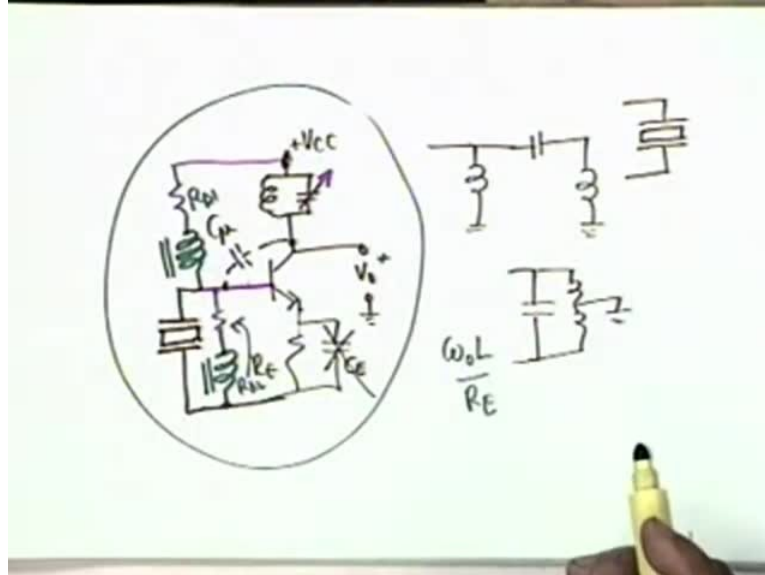 +VCC
RB1
Cμ
V0 +
RE
RB2
CE
ω0L
RE